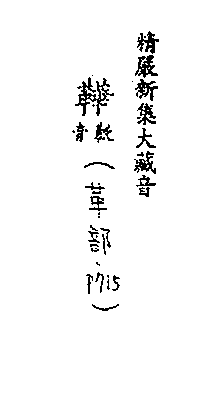 精嚴新集大藏音
鞾音（革部、P715）